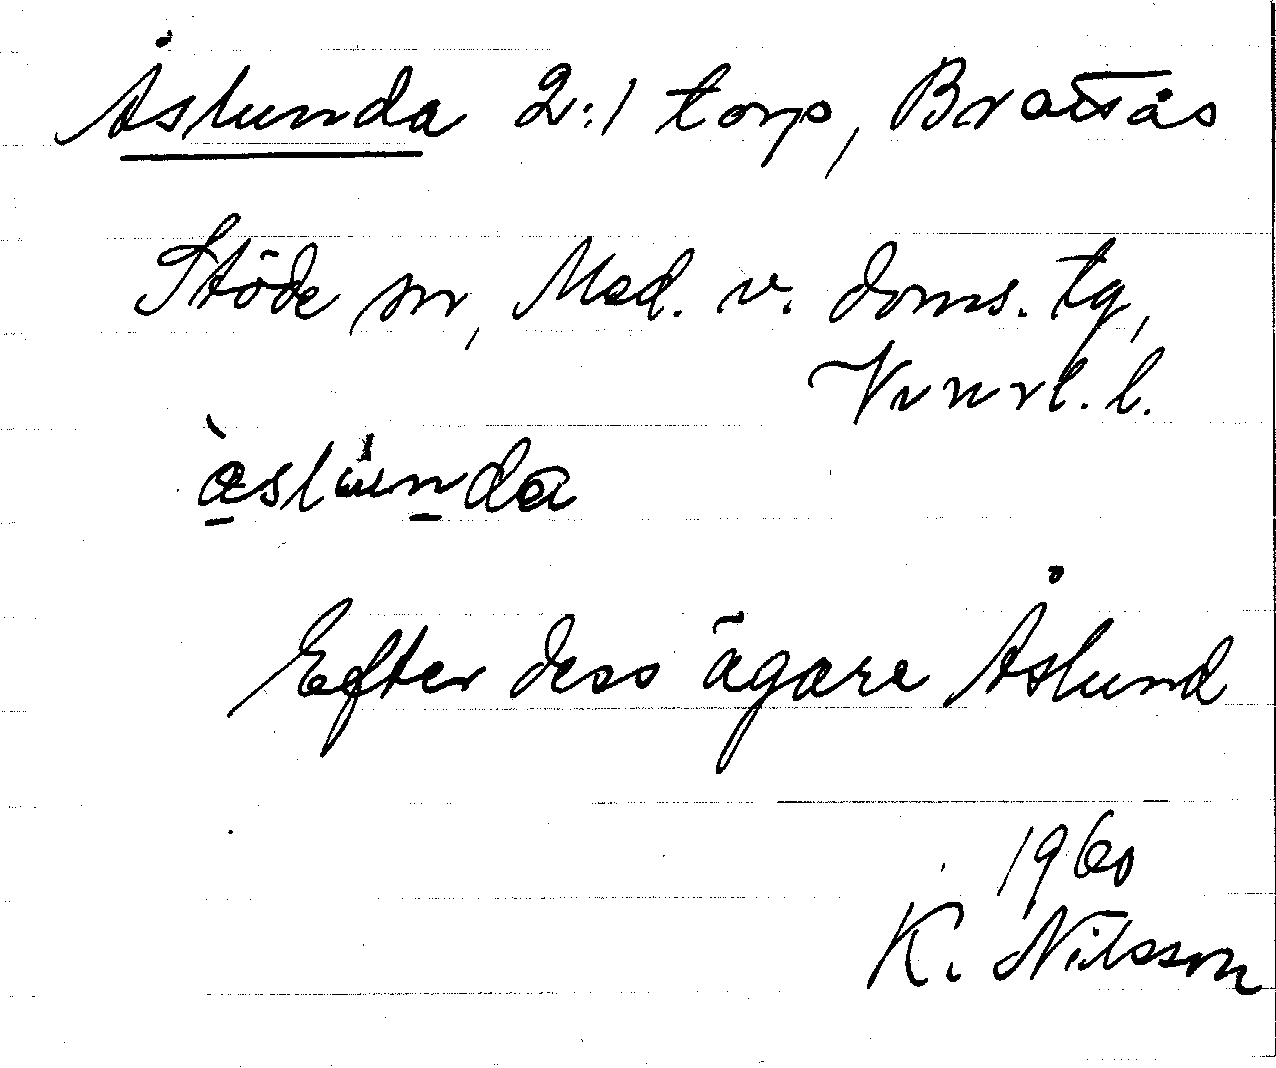 Åslunda 2:1 torp, Brattås
Stöde sn, Med. v. doms. tg,
Vvnrl. l.
àslúnda
Efter dess ägare Åslund
1960
K. Nilsson